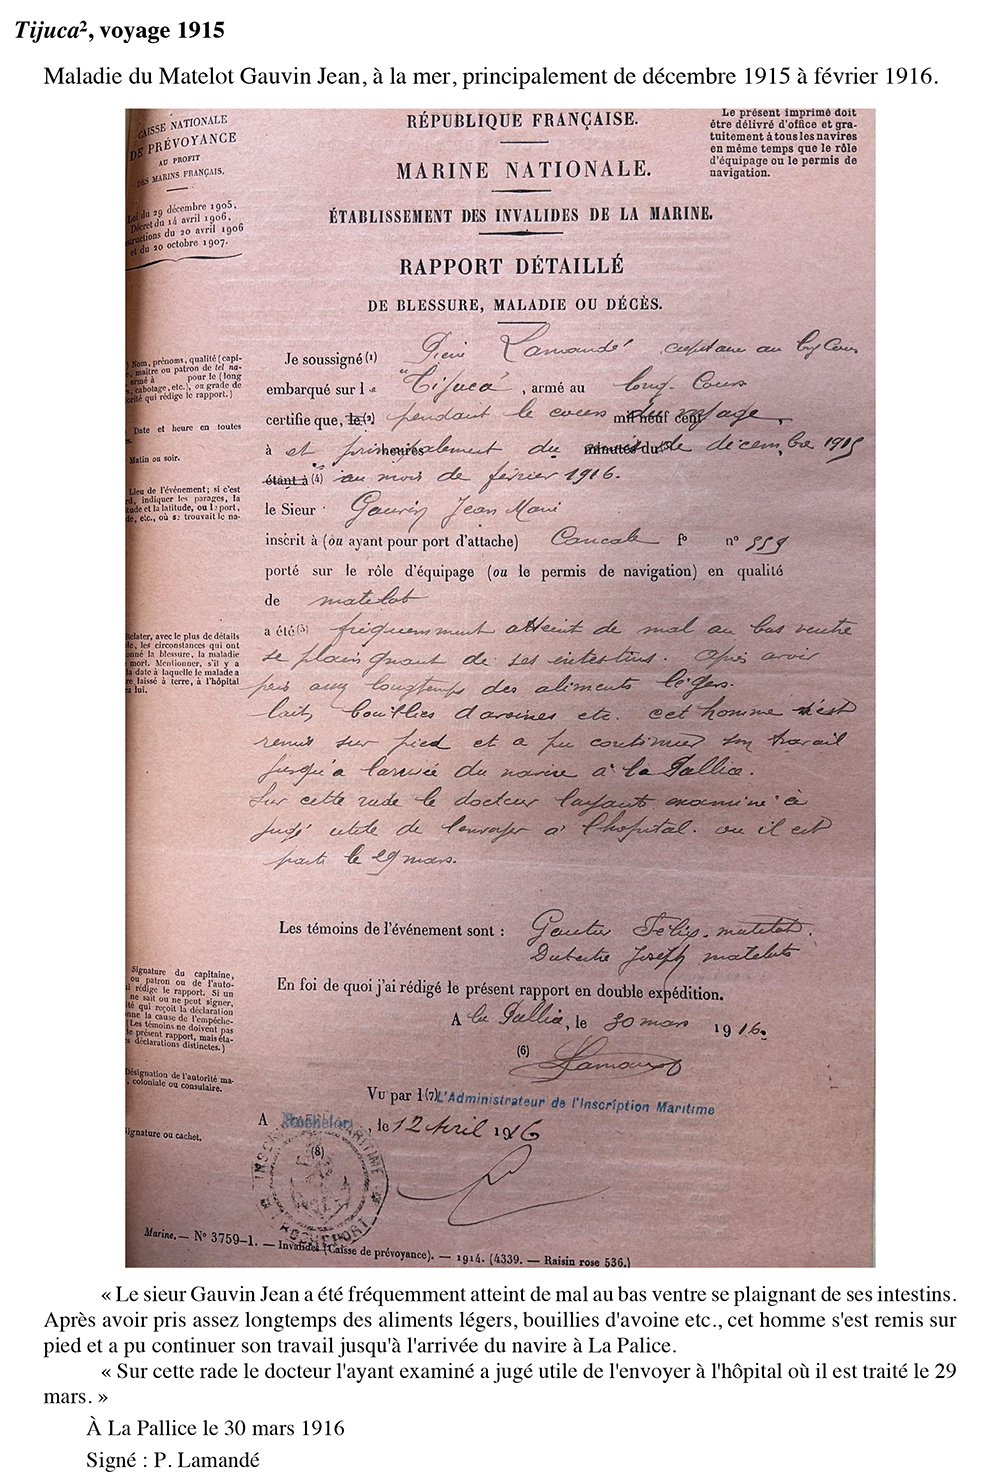 Tijuca², voyage 1915
Maladie du Matelot Gauvin Jean, à la mer, principalement de décembre 1915 à février 1916.
CAISSE NATIONALE
DE PRÉVOYANCE
AU PROFIT
DES MARINS FRANÇAIS.
Loi du 29 décembre 1905,
Décret du 14 avril 1906,
structions du 20 avril 1906
et du 20 octobre 1907.
RÉPUBLIQUE FRANÇAISE.
MARINE NATIONALE.
ÉTABLISSEMENT DES INVALIDES DE LA MARINE.
RAPPORT DÉTAILLÉ
DE BLESSURE, MALADIE OU DÉCÈS.
Le présent imprimé doit
être délivré d'office et gra-
tuitement à tous les navires
en même temps que le rôle
d'équipage ou le permis de
navigation.
) Nom, prénoms, qualité (capi-
e, maître ou patron de tel na-
armé à pour le (long
s, cabotage, etc.), ou grade de
orité qui rédige le rapport.)
Date et heure en toutes
s.
Matin ou soir.
Lieu de l'événement; si c'est
rd, indiquer les parages, la
ude et la latitude, ou le port,
de, etc., où se trouvait le na-
Je soussigné (1) Pierre Lamandé, capitaine au long Cours
embarqué sur le "Tijuca", armé au long-Cours
certifie que, le (2) pendant le cours du voyage, mil neuf cent
à et principalement heures du minutes du (3) de décembre 1915
étant à (4) au mois de février 1916.
le Sieur Gauvin Jean Marie
inscrit à (ou ayant pour port d'attache) Cancale f° n° 559
porté sur le rôle d'équipage (ou le permis de navigation) en qualité
de matelot
Relater, avec le plus de détails
le, les circonstances qui ont
onné la blessure, la maladie
mort. Mentionner, s'il y a
la date à laquelle le malade a
re laissé à terre, à l'hôpital
z lui.
a été (5) fréquemment atteint de mal au bas ventre
se plaignant de ses intestins. Après avoir
pris assez longtemps des aliments légers.
lait, bouillies d'avoines etc. cet homme s'est
remis sur pied et a pu continuer son travail
jusqu'a l'arrivée du navire à la Pallice.
Sur cette rade le docteur l'ayant examiné à
jugé utile de l'envoyer à l'hopital. ou il est
parti le 29 mars.
Les témoins de l'événement sont : Gautier Félix. matelot.
Dubertre Joseph matelots
En foi de quoi j'ai rédigé le présent rapport en double expédition.
A la Pallice, le 30 mars 1916.
(6) Lamandé
Signature du capitaine,
ou patron ou de l'auto-
i rédige le rapport. Si un
ne sait ou ne peut signer,
ité qui reçoit la déclaration
nne la cause de l'empêche-
(Les témoins ne doivent pas
le présent rapport, mais éta-
s déclarations distinctes.)
Désignation de l'autorité ma-
, coloniale ou consulaire.
Vu par l (7) L'Administrateur de l'Inscription Maritime
A Rochefort, le 12 Avril 1916
(8)
ignature ou cachet.
INSCRIPTION MARITIME
ROCHEFORT
Marine. — N° 3759-1. — Invalides (Caisse de prévoyance). — 1914. (4339. — Raisin rose 536.)
« Le sieur Gauvin Jean a été fréquemment atteint de mal au bas ventre se plaignant de ses intestins.
Après avoir pris assez longtemps des aliments légers, bouillies d'avoine etc., cet homme s'est remis sur
pied et a pu continuer son travail jusqu'à l'arrivée du navire à La Palice.
« Sur cette rade le docteur l'ayant examiné a jugé utile de l'envoyer à l'hôpital où il est traité le 29
mars. »
À La Pallice le 30 mars 1916
Signé : P. Lamandé